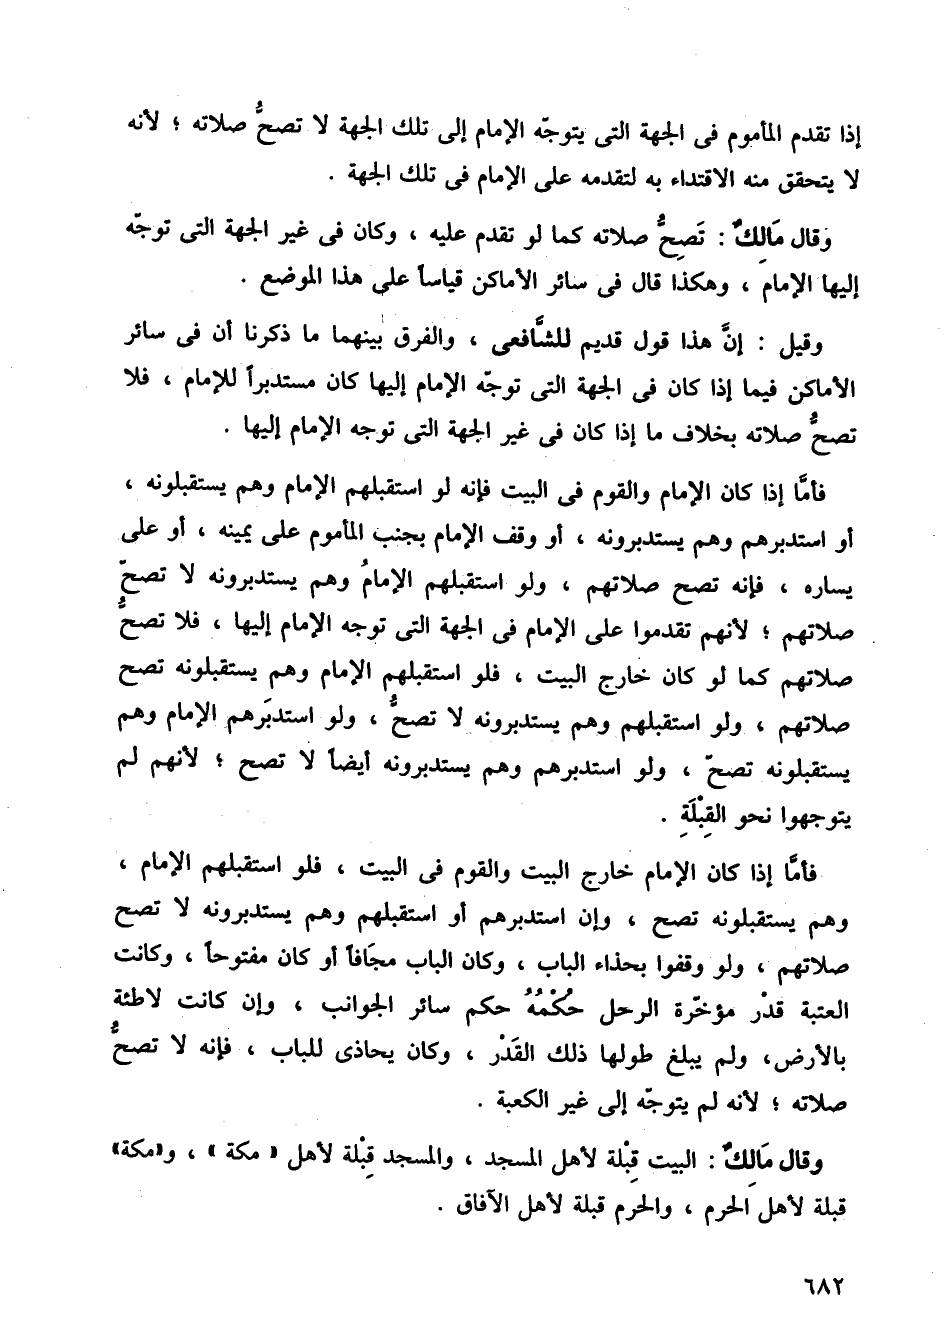 إذا تقدم المأموم فى الجهة التى يتوجّه الإمام إلى تلك الجهة لا تصحُّ صلاته ؛ لأنه
لا يتحقق منه الاقتداء به لتقدمه على الإمام فى تلك الجهة .
وقال مَالِكٌ : تَصِحُّ صلاته كما لو تقدم عليه ، وكان فى غير الجهة التى توجّه
إليها الإمام ، وهكذا قال فى سائر الأماكن قياساً على هذا الموضع .
وقيل : إنَّ هذا قول قديم للشَّافعى ، والفرق بينهما ما ذكرنا أن فى سائر
الأماكن فيما إذا كان فى الجهة التى توجّه الإمام إليها كان مستدبراً للإمام ، فلا
تصحُّ صلاته بخلاف ما إذا كان فى غير الجهة التى توجه الإمام إليها .
فأمَّا إذا كان الإمام والقوم فى البيت فإنه لو استقبلهم الإمام وهم يستقبلونه ،
أو استدبرهم وهم يستدبرونه ، أو وقف الإمام بجنب المأموم على يمينه ، أو على
يساره ، فإنه تصح صلاتهم ، ولو استقبلهم الإمامُ وهم يستدبرونه لا تصحّ
صلاتهم ؛ لأنهم تقدموا على الإمام فى الجهة التى توجه الإمام إليها ، فلا تصحُّ
صلاتهم كما لو كان خارج البيت ، فلو استقبلهم الإمام وهم يستقبلونه تصح
صلاتهم ، ولو استقبلهم وهم يستدبرونه لا تصحُّ ، ولو استدبَرهم الإمام وهم
يستقبلونه تصحّ ، ولو استدبرهم وهم يستدبرونه أيضاً لا تصح ؛ لأنهم لم
يتوجهوا نحو القِبْلَةِ .
فأمَّا إذا كان الإمام خارج البيت والقوم فى البيت ، فلو استقبلهم الإمام ،
وهم يستقبلونه تصح ، وإن استدبرهم أو استقبلهم وهم يستدبرونه لا تصح
صلاتهم ، ولو وقفوا بحذاء الباب ، وكان الباب مجَافاً أو كان مفتوحاً ، وكانت
العتبة قدْر مؤخّرة الرحل حُكْمُهُ حكم سائر الجوانب ، وإن كانت لاطئة
بالأرض، ولم يبلغ طولها ذلك القَدْر ، وكان يحاذى للباب ، فإنه لا تصحُّ
صلاته ؛ لأنه لم يتوجّه إلى غير الكعبة .
وقال مَالِكٌ : البيت قِبْلة لأهل المسجد ، والمسجد قِبْلة لأهل « مكة » ، و«مكة»
قبلة لأهل الحرم ، والحرم قبلة لأهل الآفاق .
٦٨٢